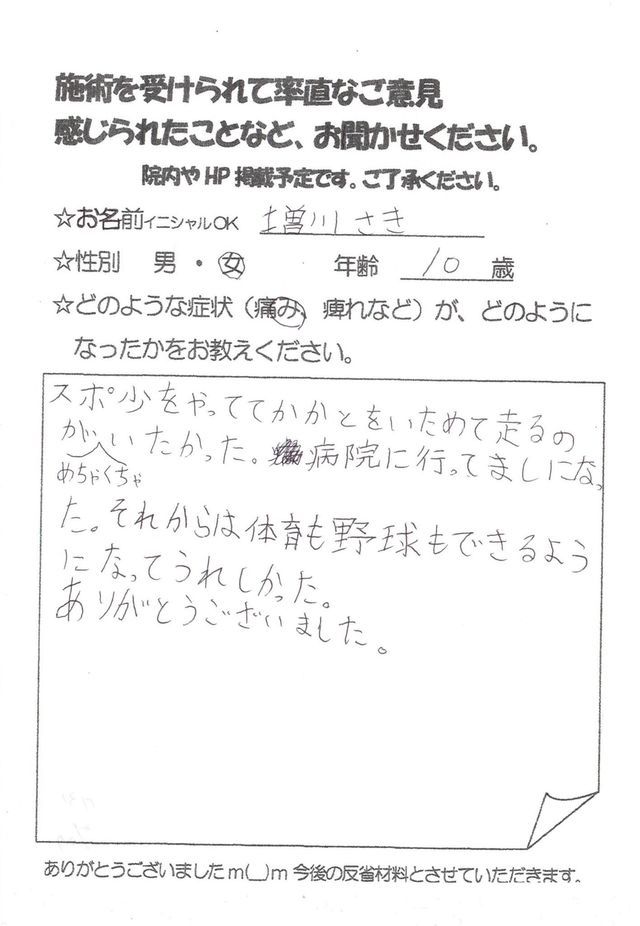 施術を受けられて率直なご意見
感じられたことなど、お聞かせください。
院内や HP 掲載予定です。ご了承ください。
☆お名前イニシャルOK 増川さき
☆性別 男・女 年齢 10 歳
☆どのような症状(痛み、痺れなど)が、どのように
なったかをお教えください。
スポ少をやっててかかとをいためて走るの
がいたかった。病院に行ってましになっ
めちゃくちゃ
た。それからは体育も野球もできるよう
になってうれしかった。
ありがとうございました。
ありがとうございましたm(__)m 今後の反省材料とさせていただきます。